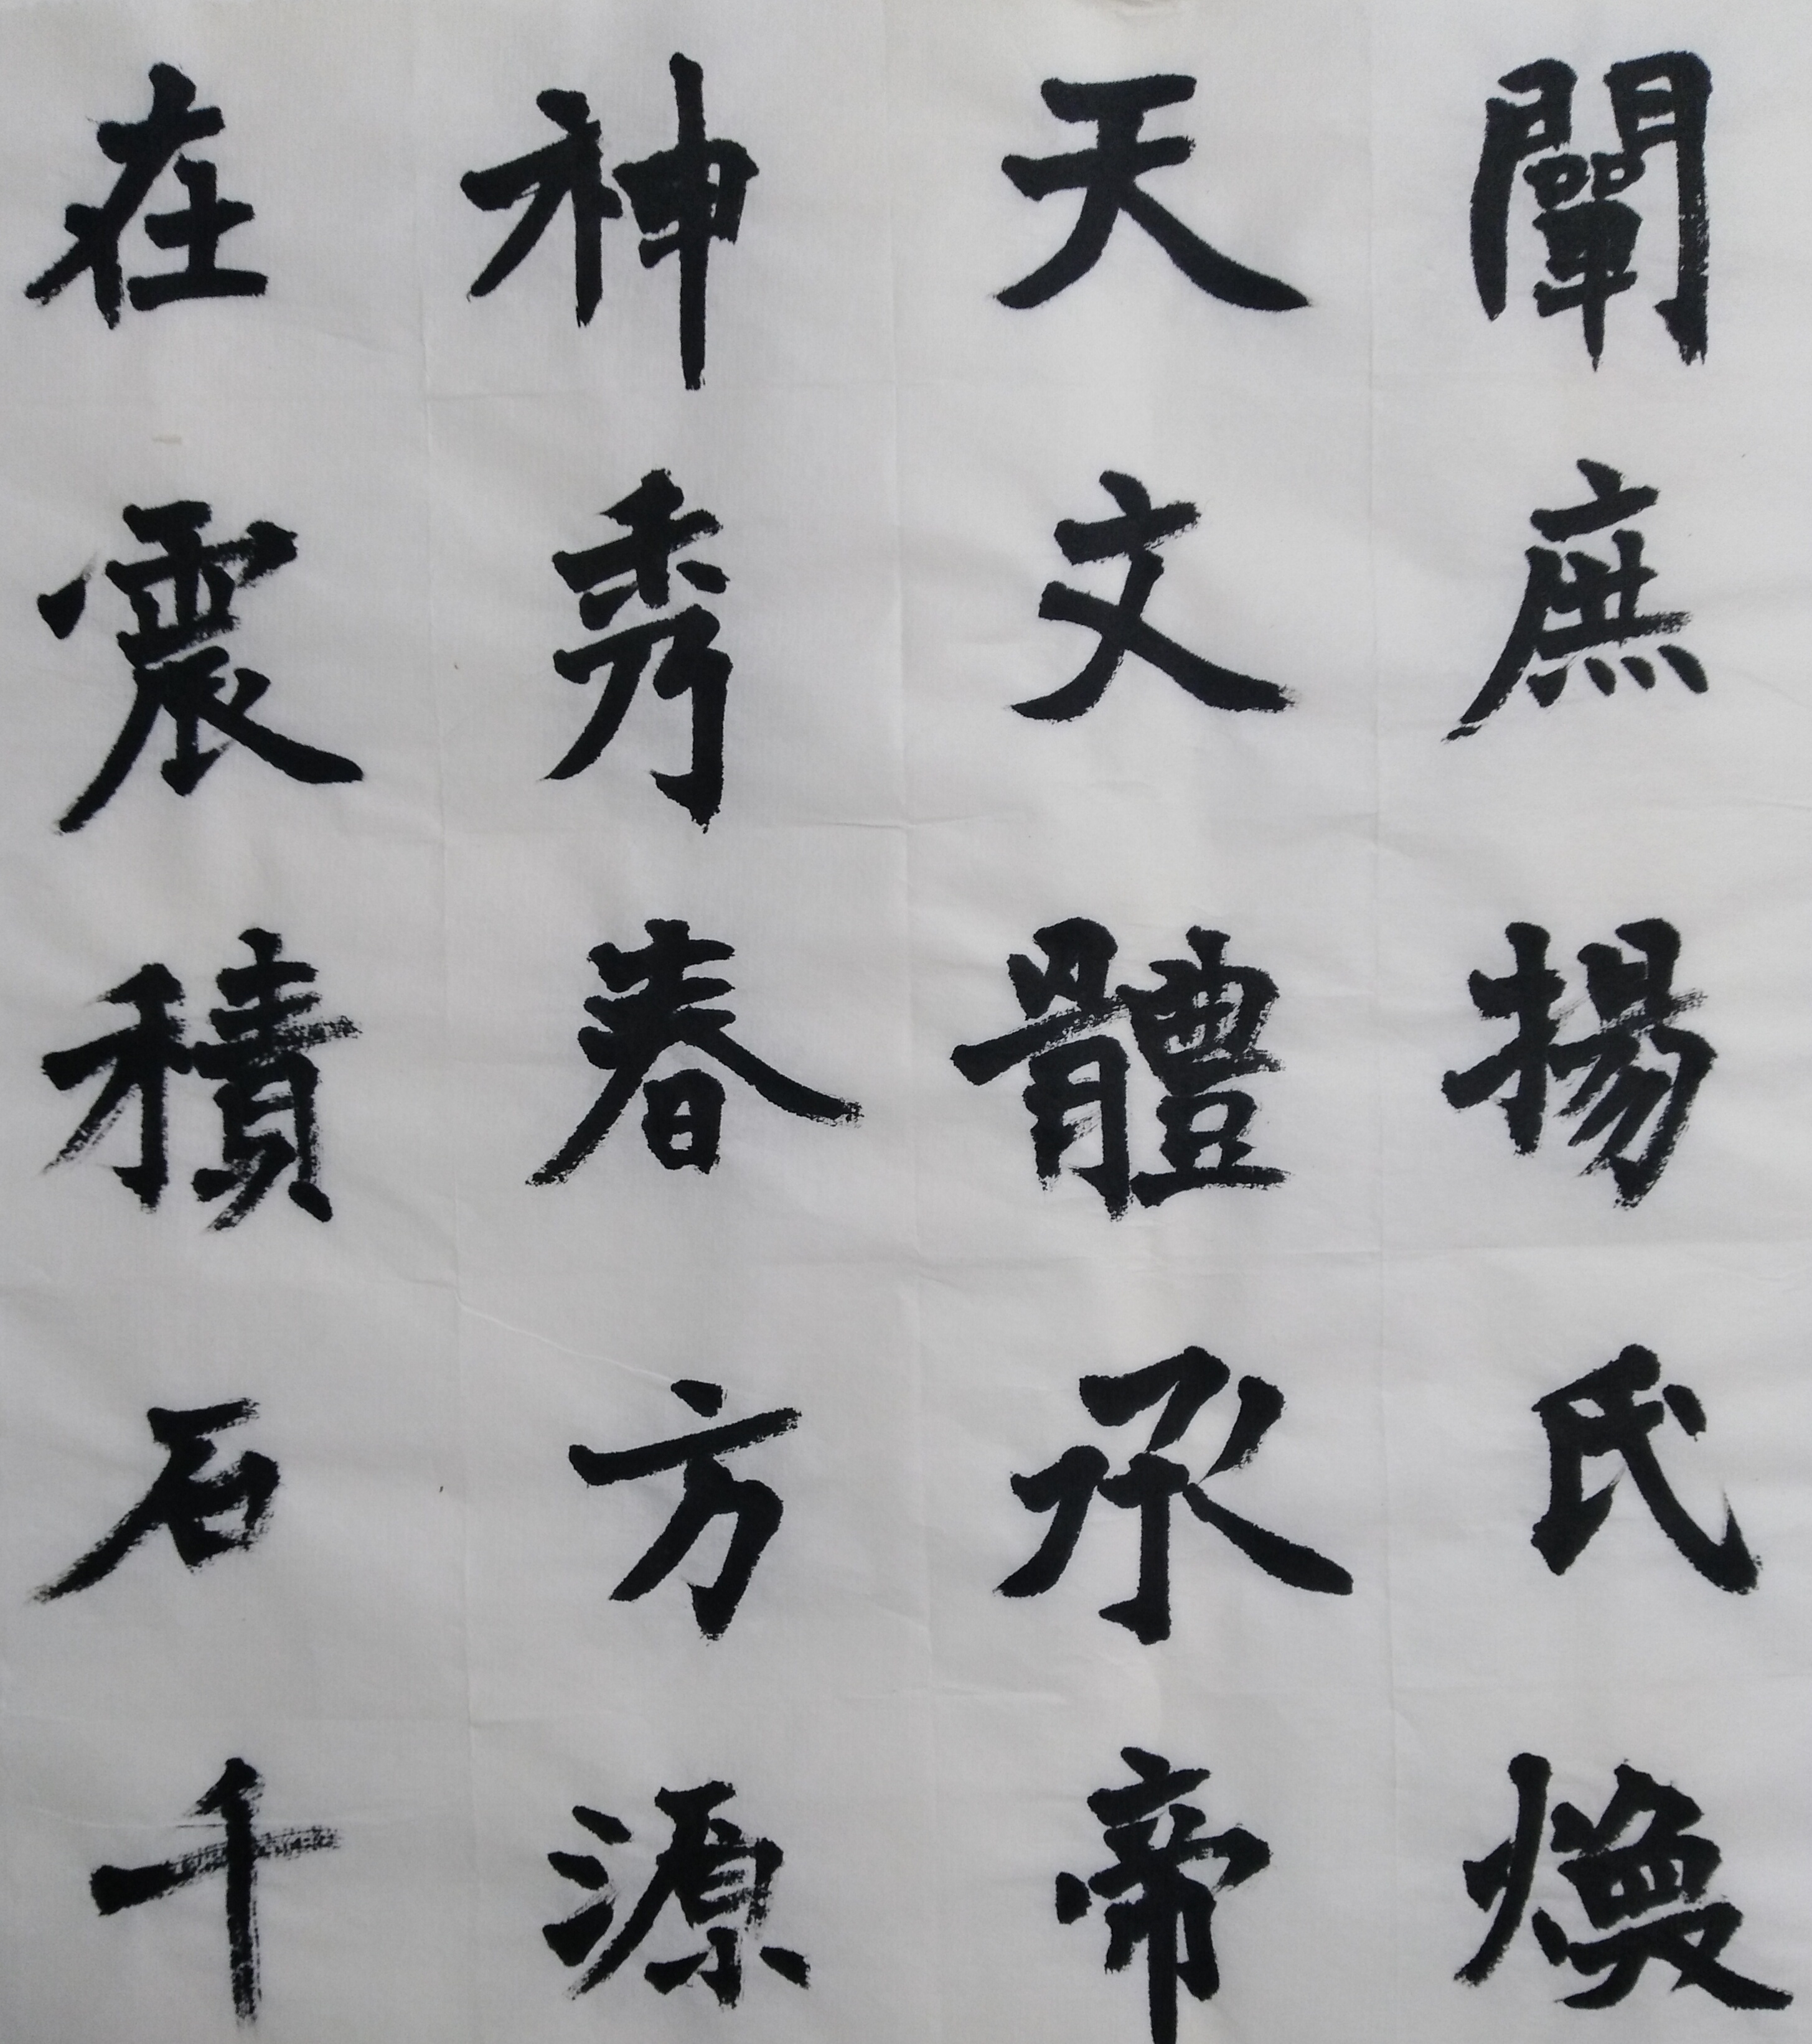 闡庶揚氏煥
天文體承帝
神秀春方源
在震積石千